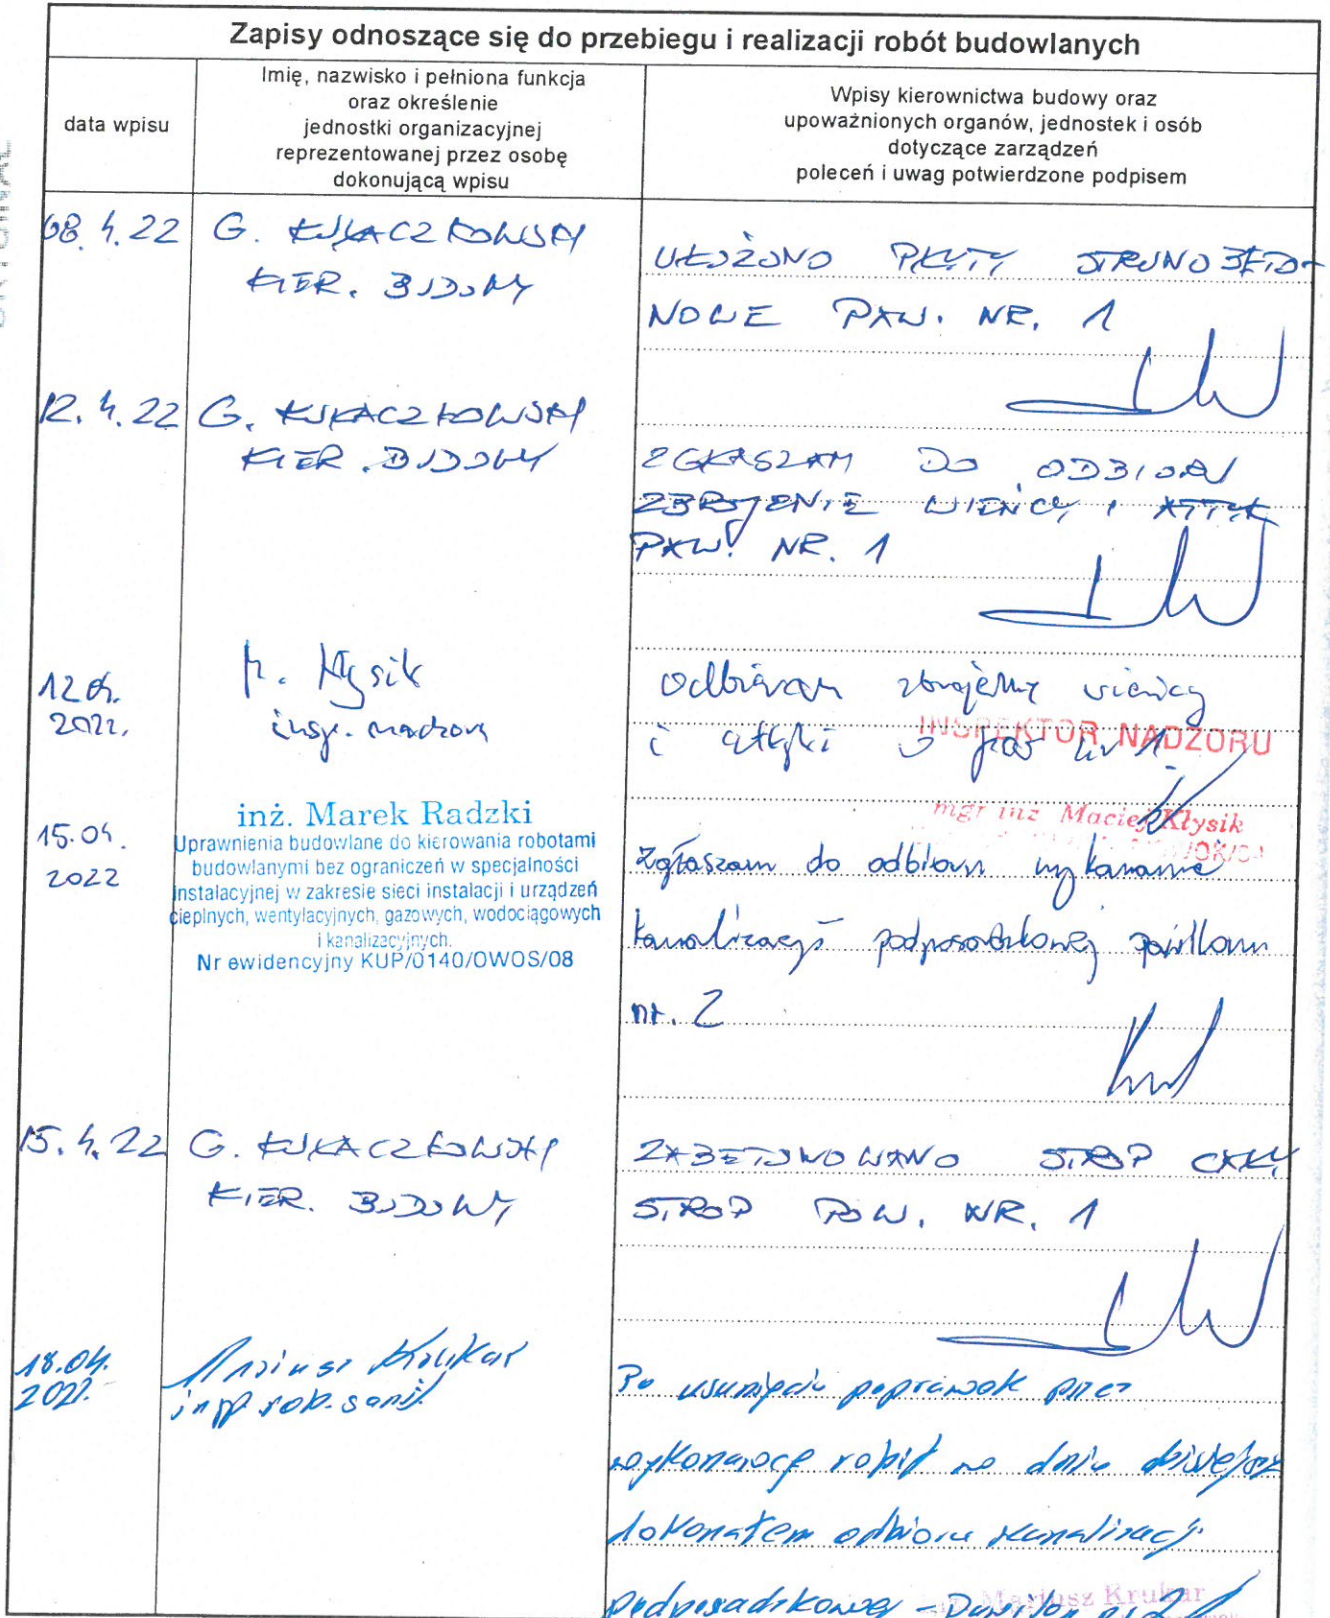 Zapisy odnoszące się do przebiegu i realizacji robót budowlanych
data wpisu
Imię, nazwisko i pełniona funkcja
oraz określenie
jednostki organizacyjnej
reprezentowanej przez osobę
dokonującą wpisu
Wpisy kierownictwa budowy oraz
upoważnionych organów, jednostek i osób
dotyczące zarządzeń
poleceń i uwag potwierdzone podpisem
08.4.22
G.
KIER. BUDOWY
UŁOŻONO PŁYTY STRUNOBETO-
NOWE PAW. NR. 1
12.4.22
G.
KIER. BUDOWY
ZGŁASZAM DO ODBIORU
ZBROJENIE WIEŃCY I ATTYK
PAW. NR. 1
12.04.
2022.
M. Kłysik
insp. nadzoru
Odbieram zbrojenie wieńcy
i attyki w paw nr 1.
INSPEKTOR NADZORU
mgr inż. Maciej Kłysik
15.04.
2022
inż. Marek Radzki
Uprawnienia budowlane do kierowania robotami
budowlanymi bez ograniczeń w specjalności
instalacyjnej w zakresie sieci instalacji i urządzeń
cieplnych, wentylacyjnych, gazowych, wodociągowych
i kanalizacyjnych.
Nr ewidencyjny KUP/0140/OWOS/08
Zgłaszam do odbioru wykonanie
kanalizacji podposadzkowej pawilonu
nr. 2
15.4.22
G.
KIER. BUDOWY
ZABETONOWANO STROP CAŁY
STROP PAW. NR. 1
18.04.
2022.
Mariusz Krukar
insp. rob. sanit.
Po usunięciu poprawek przez
wykonawcę robót na dniu dzisiejsz
dokonałem odbioru kanalizacji
podposadzkowej - Pawilon nr 2
Mariusz Krukar